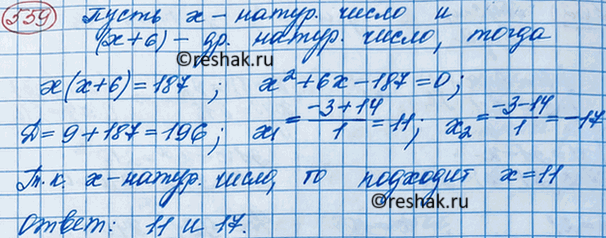 559 Пусть x - натур. число и
© reshak.ru
(x+6) - др. натур. число, тогда
x(x+6)=187 ; x²+6x-187=0;
D=9+187=196; x₁=(-3+14)/1=11; x₂=(-3-14)/1=-17
Т.к. x-натур. число, то подходит x=11
© reshak.ru
Ответ: 11 и 17.